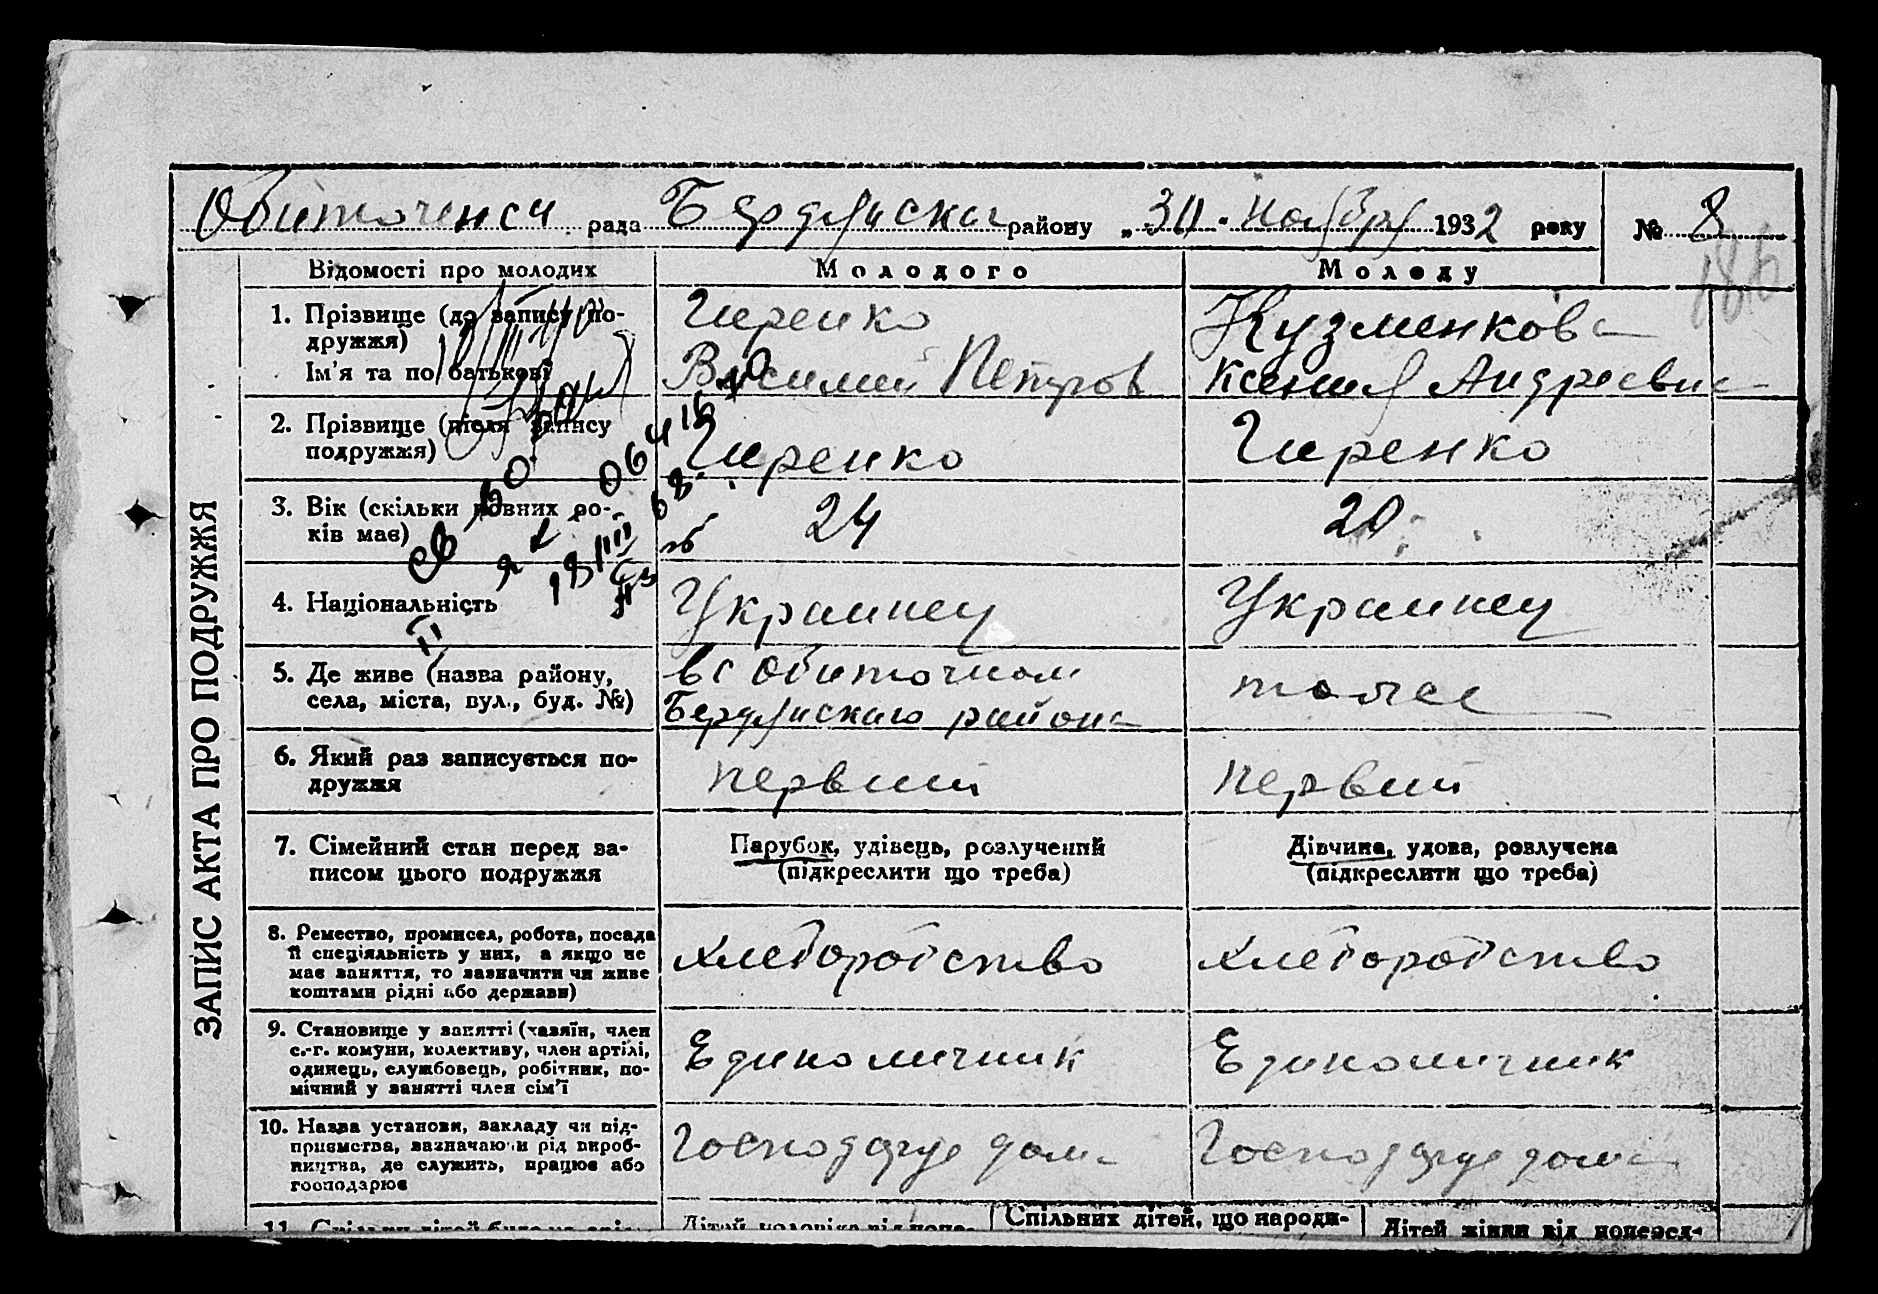 Обиточенск рада Бердянский району „30" ноября 1932 року № 8
Відомості про молодих
Молодого
Молоду
1. Прізвище (до запису по-
дружжя)
Ім'я та по батькові
Гиренко
Василий Петров
Кузменкова
Ксения Андреевна
2. Прізвище (після запису
подружжя)
Гиренко
Гиренко
3. Вік (скільки повних ро-
ків має)
24
20
4. Національність
Украинец
Украинец
5. Де живе (назва району,
села, міста, вул., буд. №)
в с Обиточном
Бердянскаго района
тоже
6. Який раз записується по-
дружжя
первий
первий
7. Сімейний стан перед за-
писом цього подружжя
Парубок, удівець, розлучений
(підкреслити що треба)
Дівчина, удова, розлучена
(підкреслити що треба)
8. Ремество, промисел, робота, посада
й спеціяльність у них, а якщо не
має заняття, то зазначити чи живе
коштами рідні або держави)
хлеборобство
хлеборобство
9. Становище у занятті (хазяїн, член
с.-г. комуни, колективу, член артілі,
одинець, службовець, робітник, по-
мічний у занятті член сім'ї
Единоличник
Единоличник
10. Назва установи, закладу чи під-
приємства, зазначаючи рід вироб-
ництва, де служить, працює або
господарює
Господарує дома
Господарує дома
Спільних дітей, що народи-
Дітей жінки від поперед-
ЗАПИС АКТА ПРО ПОДРУЖЖЯ